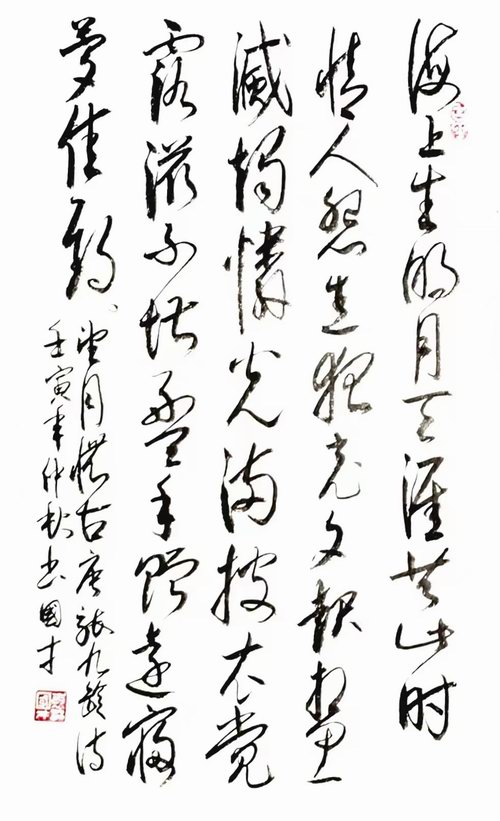 海上生明月天涯共此时
情人怨遥夜竟夕起相思
滅烛憐光满披衣觉
露滋不堪盈手赠还寝
梦佳期
望月怀古唐张九龄诗
壬寅年仲秋书國才